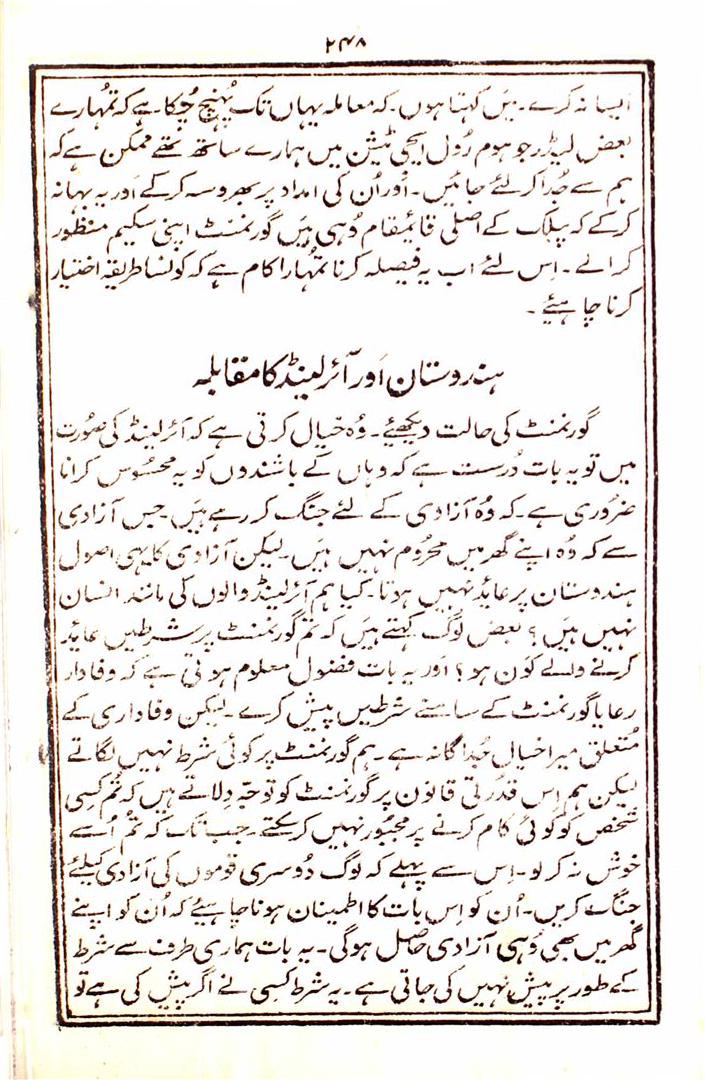 ۲۴۸
ایسا نہ کرے۔ میں کہتا ہوں۔ کہ معاملہ یہاں تک پہنچ چُکا ہے کہ تمُہارے
بعض لیڈر جو ہوم رُول ایجی ٹیشن میں ہمارے ساتھ تھے ممکن ہے کہ
ہم سے جُدا کر لئے جائیں۔ اَور اُن کی امداد پر بھروسہ کرکے اَور یہ بہانہ
کرکے کہ پبلک کے اصلی قائمقام وُہی ہیں گورنمنٹ اپنی سکیم منظور
کرالے۔ اِس لئے اب یہ فیصلہ کرنا تمُہارا کام ہے کہ کونسا طریقہ اختیار
کرنا چاہیئے۔
ہندوستان اَور آئرلینڈ کا مقابلہ
گورنمنٹ کی حالت دیکھئے۔ وُہ خیال کرتی ہے کہ آئرلینڈ کی صُورت
میں تو یہ بات دُرست ہے کہ وہاں کے باشندوں کو یہ محسُوس کرانا
ضروری ہے۔ کہ وُہ آزادی کے لئے جنگ کر رہے ہیں۔ جس آزادی
سے کہ وُہ اپنے گھر میں محرُوم نہیں ہیں۔ لیکن آزادی کا یہی اصول
ہندوستان پر عائد نہیں ہوتا۔ کیا ہم آئرلینڈ والوں کی مانند انسان
نہیں ہیں؟ بعض لوگ کہتے ہیں کہ تم گورنمنٹ پر شرطیں عائد
کرنے والے کون ہو؟ اَور یہ بات فضول معلوم ہوتی ہے کہ وفادار
رعایا گورنمنٹ کے سامنے شرطیں پیش کرے۔ لیکن وفاداری کے
مُتعلق میرا خیال جُداگانہ ہے۔ ہم گورنمنٹ پر کوئی شرط نہیں لگاتے
لیکن ہم اِس قدُرتی قانون پر گورنمنٹ کو توجّہ دِلاتے ہیں کہ تمُ کسِی
شخص کو کوئی کام کرنے پر مجبُور نہیں کر سکتے۔ جب تک کہ تم اُسے
خوش نہ کر لو۔ اِس سے پہلے کہ لوگ دُوسری قوموں کی آزادی کیلئے
جنگ کریں۔ اُن کو اِس بات کا اطمینان ہونا چاہیئے کہ اُن کو اپنے
گھر میں بھی وُہی آزادی حاصل ہوگی۔ یہ بات ہماری طرف سے شرط
کے طور پر پیش نہیں کی جاتی ہے۔ یہ شرط کسِی نے اگر پیش کی ہے تو